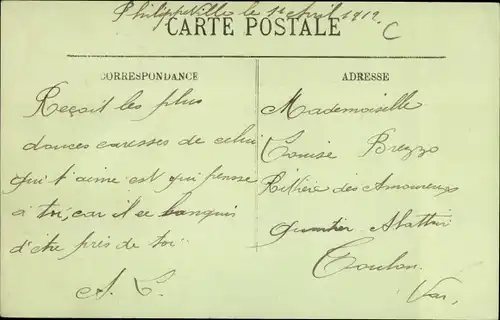 Philippeville le 1e Avril 1912
CARTE POSTALE
C
CORRESPONDANCE
Reçoit les plus
douces caresses de celui
qui t'aime est qui pensse
à toi, car il ce languis
d'être près de toi.
A. C.
ADRESSE
Mademoiselle
Louise Brezzo
Rivière des Amoureux
quartier
Toulon
Var,